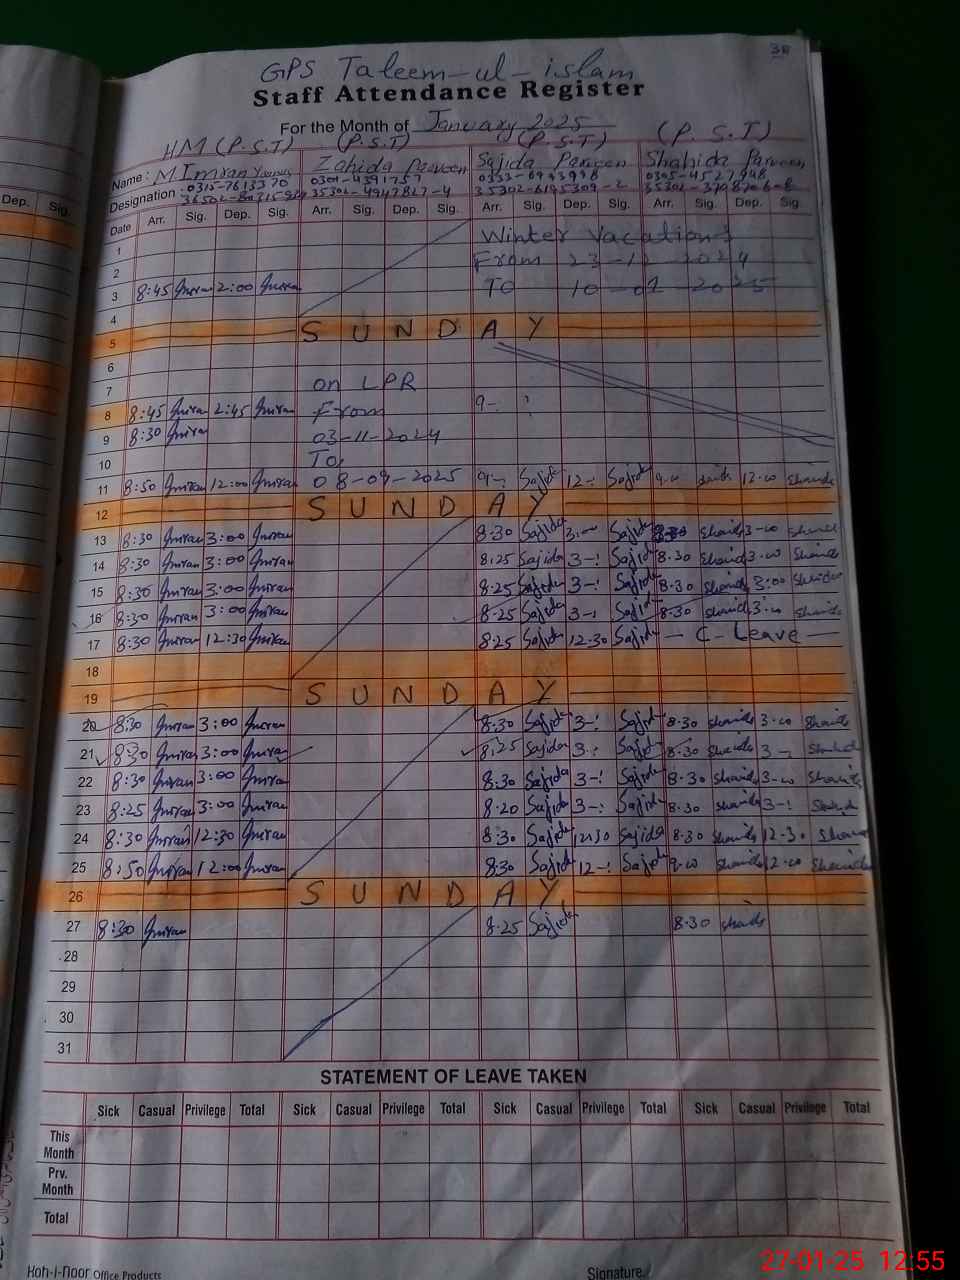 38
GPS Taleem-ul-islam
Staff Attendance Register
For the Month of January 2025
HM (P.S.T) (P.S.T) (P.S.T) (P.S.T)
Name: M Imran Zahida Parveen Sajida Parveen Shahida Parveen
Designation: 0315-7613370 0301-4391757
35302-4947827-4
Dep. Sig.
Date Arr. Sig. Dep. Sig. Arr. Sig. Dep. Sig. Arr. Sig. Dep. Sig. Arr. Sig. Dep. Sig.
1 Winter Vacations
2 From 23-12 2024
3 8:45 Imran 2:00 Imran To 10-01 2025
4
5 S U N D A Y
6
7 on LPR
8 8:45 Imran 2:45 Imran From 9-:
9 8:30 Imran 03-11-2024
10 To
11 8:50 Imran 12:00 Imran 08-09-2025 9-: Sajida 12-: Sajida 9.00 12.00
12 S U N D A Y
13 8:30 Imran 3:00 Imran 8.30 Sajida 3:00 Sajida 8.30 Shaida 3-00
14 8:30 Imran 3:00 Imran 8.25 Sajida 3-: Sajida 8.30 Shaida 3.00 Shaida
15 8:30 Imran 3:00 Imran 8.25 Sajida 3-: Sajida 8.30 Shaida 3:00 Shaida
16 8:30 Imran 3:00 Imran 8.25 Sajida 3-: Sajida 8.30 Shaida 3.00 Shaida
17 8:30 Imran 12:30 Imran 8.25 Sajida 12.30 Sajida - C-Leave -
18
19 S U N D A Y
20 8:30 Imran 3:00 Imran 8.30 Sajida 3-: Sajida 8.30 Shaida 3.00 Shaida
21 8:30 Imran 3:00 Imran 8.25 Sajida 3-: Sajida 8.30 Shaida 3-
22 8:30 Imran 3:00 Imran 8.30 Sajida 3-: Sajida 8.30 Shaida 3-00 Shaida
23 8:25 Imran 3:00 Imran 8.20 Sajida 3-: Sajida 8.30 Shaida 3-:
24 8:30 Imran 12:30 Imran 8.30 Sajida 12.30 Sajida 8.30 Shaida 12.30 Shaida
25 8:50 Imran 12:00 Imran 8.30 Sajida 12-: Sajida 9.00 Shaida 12.00 Shaida
26 S U N D A Y
27 8:30 Imran 8.25 Sajida 8.30 Shaida
28
29
30
31
STATEMENT OF LEAVE TAKEN
Sick Casual Privilege Total Sick Casual Privilege Total Sick Casual Privilege Total Sick Casual Privilege Total
This Month
Prv. Month
Total
Koh-i-noor Office Products Signature.
27-01-25 12:55